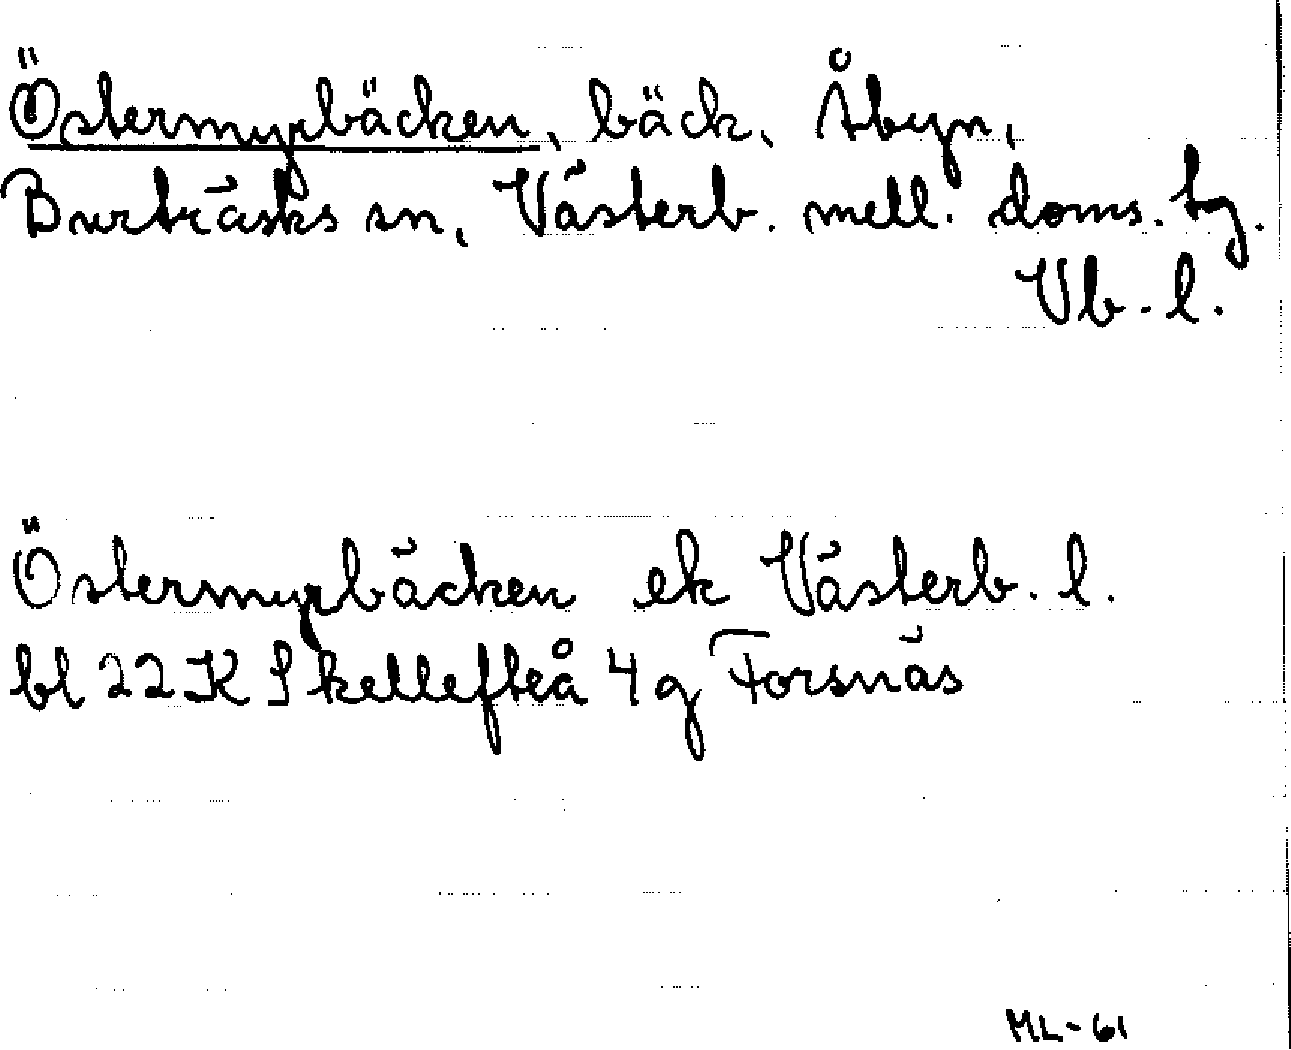 Östermyrbäcken, bäck, Åbyn,
Burträsks sn, Västerb. mell. doms. tg.
Vb. l.
Östermyrbäcken ek Västerb. l.
bl 22 K Skellefteå 4 g Forsnäs
ML-61